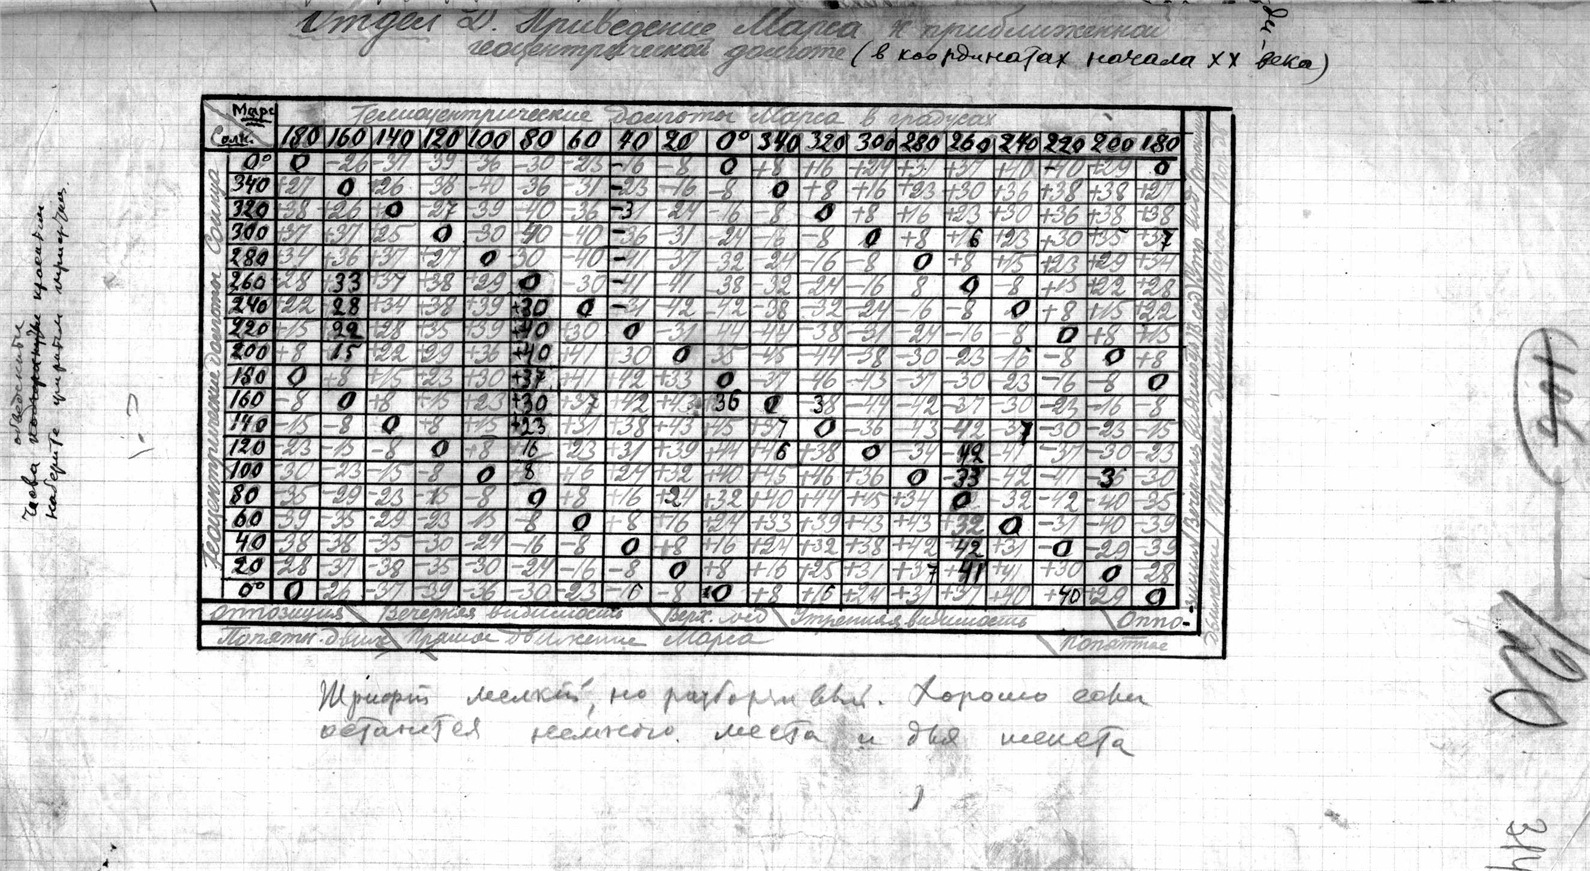 Отдел Д. Приведение Марса к приближенной
геоцентрической долготе (в координатах начала XX века)
Марс
Солн.
Гелиоцентрические долготы Марса в градусах
180 160 140 120 100 80 60 40 20 0° 340 320 300 280 260 240 220 200 180
Геоцентрические долготы Солнца
0° 0 -26 -37 -39 -36 -30 -23 -16 -8 0 +8 +16 +24 +31 +37 +40 +40 +29 0
340 +27 0 +26 -38 -40 -36 -31 -23 -16 -8 0 +8 +16 +23 +30 +36 +38 +38 +27
320 +38 +26 0 -27 -39 -40 -36 -31 -24 -16 -8 0 +8 +16 +23 +30 +36 +38 +38
300 +37 +37 +25 0 -30 -40 -40 -36 -31 -24 -16 -8 0 +8 +16 +23 +30 +35 +37
280 +34 +36 +37 +27 0 -30 -40 -41 -37 -32 -24 -16 -8 0 +8 +15 +23 +29 +34
260 +28 33 +37 +38 +29 0 -30 -41 -41 -38 -32 -24 -16 8 0 -8 +15 +22 +28
240 +22 28 +34 +38 +39 +30 0 -31 -42 -42 -38 -32 -24 -16 -8 0 +8 +15 +22
220 +15 22 +28 +35 +39 +40 +30 0 -31 -44 -44 -38 -31 -24 -16 -8 0 +8 +15
200 +8 15 +22 +29 +36 +40 +41 +30 0 35 -45 -44 -38 -30 -23 -16 -8 0 +8
180 0 +8 +15 +23 +30 +37 +41 +42 +33 0 -37 -46 -43 -37 -30 -23 -16 -8 0
160 -8 0 +8 +15 +23 +30 +37 +42 +43 +36 0 38 -44 -42 -37 -30 -23 -16 -8
140 -15 -8 0 +8 +15 +23 +31 +38 +43 +45 +37 0 -36 -43 -42 37 -30 -23 -15
120 -23 -15 -8 0 +8 +16 +23 +31 +39 +44 +46 +38 0 -34 -42 -41 -37 -30 -23
100 -30 -23 -15 -8 0 +8 +16 +24 +32 +40 +45 +46 +36 0 -33 -42 -41 36 -30
80 -35 -29 -23 -15 -8 0 +8 +16 +24 +32 +40 +44 +45 +34 0 -32 -42 -40 -35
60 -39 -35 -29 -23 -15 -8 0 +8 +16 +24 +33 +39 +43 +43 +32 0 -31 -40 -39
40 -38 -38 -35 -30 -24 -16 -8 0 +8 +16 +24 +32 +38 +42 +42 +31 0 -29 -39
20 -28 -37 -38 -35 -30 -24 -16 -8 0 +8 +16 +25 +31 +37 +41 +41 +30 0 -28
0° 0 26 -37 -39 -36 -30 -23 -16 -8 0 +8 +16 +24 +31 +37 +40 +40 +29 0
оппозиция Вечерняя видимость Верх. соед Утренняя видимость Оппо-
Попятн. движ Прямое движение Марса Попятное
Шрифт мелкий, но разборчивый. Хорошо если
останется немного места и для текста
слева
наберите
120
314